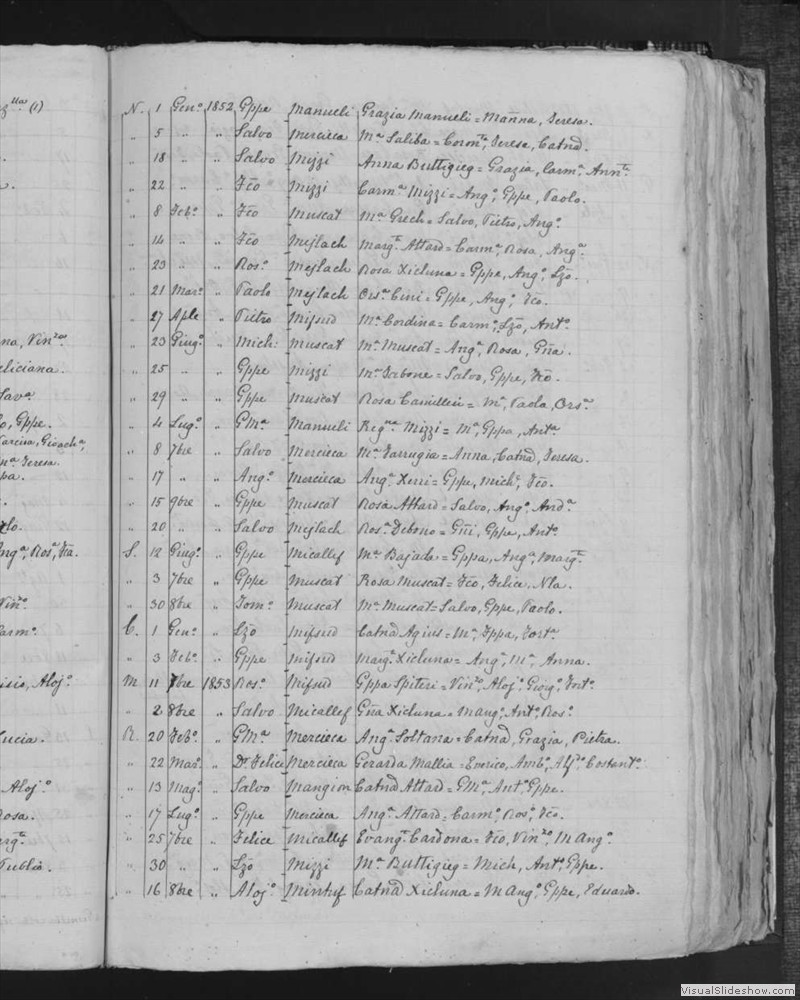 lla (1)
N. 1 Gen.o 1852 Gppe Manueli Grazia Manueli = Mãnna, Teresa.
„ 5 „ „ Salvo Mercieca M.a Saliba = Coron.ta, Teresa, Catnd.
„ 18 „ „ Salvo Mizzi Anna Buttigieg = Grazia, Carm.a, Ann.ta
„ 22 „ „ Fco Mizzi Carm.a Mizzi = Ang.o, Gppe, Paolo.
„ 8 Feb.o „ Fco Muscat M.a Grech = Salvo, Pietro, Ang.o
„ 14 „ „ Fco Mejlach Marg.ta Attard = Carm.a, Rosa, Ang.a
„ 23 „ „ Ros.o Mejlach Rosa Xicluna = Gppe, Ang.o, Lzo.
„ 21 Mar.o „ Paolo Mejlach Ors.a Cini = Gppe, Ang.o, Fco.
„ 27 Aple „ Pietro Mifsud M.a Cordina = Carm.o, Lzo, Ant.o
na, Vin.zo „ 23 Giug.o „ Mich: Muscat M.a Muscat = Ang.a, Rosa, Gña.
eliciana. „ 25 „ „ Gppe Mizzi M.a Tabone = Salvo, Gppe, Fco.
Sav.a „ 29 „ „ Gppe Muscat Rosa Camilleri = M.a, Paola, Ors.a
o, Gppe. „ 4 Lug.o „ GM.a Manueli Reg.na Mizzi = M.a, Gppa, Ant.a
Tarcisa, Gioach.a, „ 8 7bre „ Salvo Mercieca M.a Farrugia = Anna, Catnd, Teresa.
n.a Teresa.
pa. „ 17 „ „ Ang.o Mercieca Ang.a Xerri = Gppe, Mich.e, Fco.
„ 15 9bre „ Gppe Muscat Rosa Attard = Salvo, Ang.o, And.a
lo. „ 20 „ „ Salvo Mejlach Ros.a Debono = Gñi, Gppe, Ant.o
Ang.a, Ros.a, Fca. S. 12 Giug.o „ Gppe Micallef M.a Bajada = Gppa, Ang.a, Marg.ta
„ 3 7bre „ Gppe Muscat Rosa Muscat = Fco, Felice, Nla.
Vin.zo „ 30 8bre „ Tom.o Muscat M.a Muscat = Salvo, Gppe, Paolo.
Carm.o C. 1 Gen.o „ Lzo Mifsud Catnd Agius = M.a, Fort.a
„ 3 Feb.o „ Gppe Mifsud Marg.a Xicluna = Ang.a, M.a, Anna.
Aloj.o M. 11 7bre 1853 Ros.o Mifsud Gppa Spiteri = Vin.zo, Aloj.o, Giorg.o, Fort.o
„ 2 8bre „ Salvo Micallef Gña Xicluna = M Ang.o, Ant.o, Ros.o
Lucia. R. 20 Feb.o „ GM.a Mercieca Ang.a Soltana = Catnd, Grazia, Pietra.
„ 22 Mar.o „ Dr Felice Mercieca Gerarda Mallia = Enrico, Amb.o, Alf.o, Costant.o
Aloj.o „ 13 Mag.o „ Salvo Mangion Catnd Attard = GM.a, Ant.o, Gppe.
Rosa. „ 17 Lug.o „ Gppe Mercieca Ang.a Attard = Carm.o, Ros.o, Fco.
„ 25 7bre „ Felice Micallef Evang.ta Cardona = Fco, Vin.zo, M Ang.o
Publio. „ 30 „ „ Lzo Mizzi M.a Buttigieg = Mich, Ant.o, Gppe.
„ 16 8bre „ Aloj.o Mintuf Catnd Xicluna = M Ang.o, Gppe, Eduardo.
VisualSlideshow.com